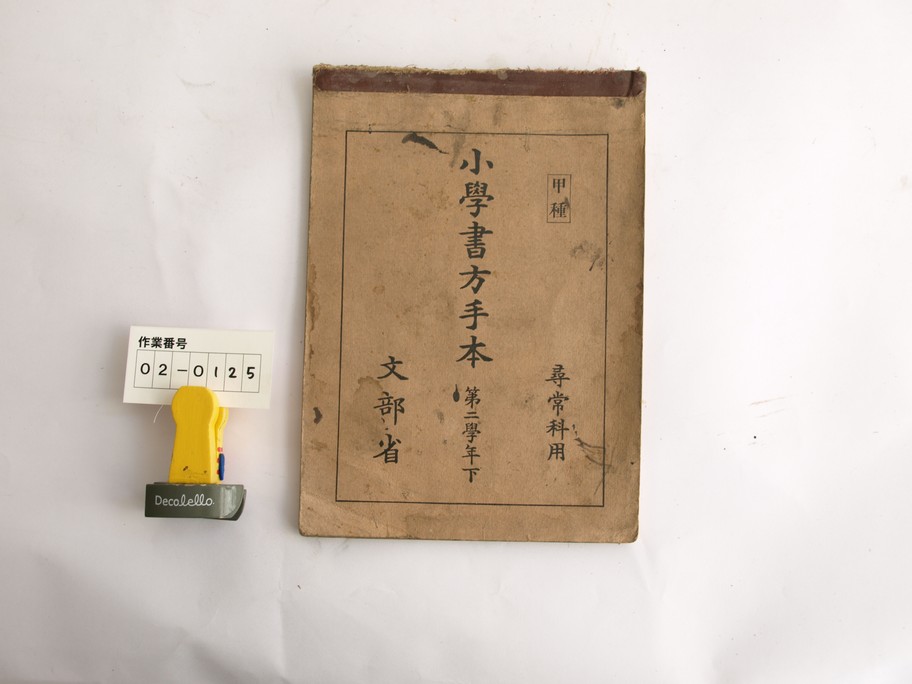 甲種
尋常科用
小學書方手本
第二學年下
文部省
作業番号
02-0125
Decolello